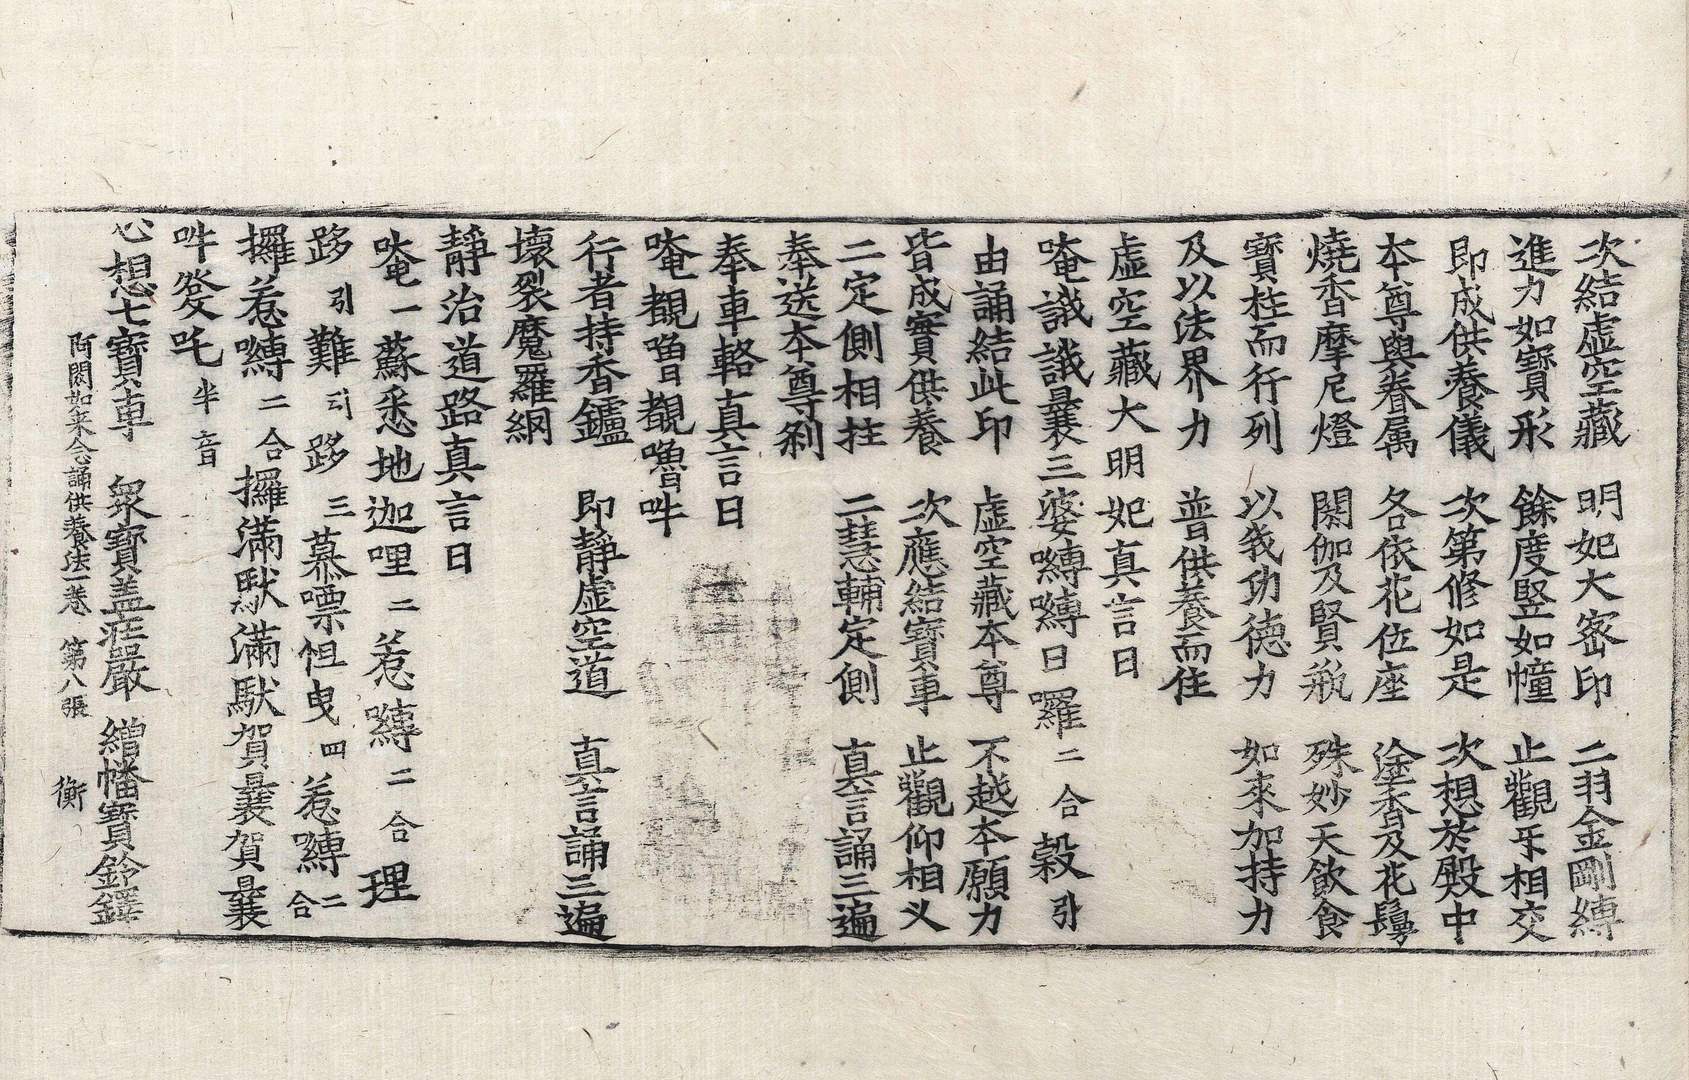 次結虛空藏　明妃大密印　二羽金剛縛
進力如寶形　餘度竪如幢　止觀牙相交
即成供養儀　次第修如是　次想於殿中
本尊與眷属　各依花位座　塗香及花鬘
燒香摩尼燈　閼伽及賢瓶　殊妙天飲食
寶柱而行列　以我功德力　如來加持力
及以法界力　普供養而住
虛空藏大明妃真言曰
唵誐誐曩三婆嚩嚩日囉二合穀引
由誦結此印　虛空藏本尊　不越本願力
皆成實供養　次應結寶車　止觀仰相叉
二定側相拄　二慧輔定側　真言誦三遍
奉送本尊剎
奉車輅真言曰
唵覩嚕覩嚕吽
行者持香鑪　即靜虛空道　真言誦三遍
壞裂魔羅網
靜治道路真言曰
唵一蘇悉地迦哩二惹嚩二合理
跢引難引跢三慕㗚怛曳四惹嚩二合
攞惹嚩二合攞滿馱滿馱賀曩賀曩
吽發吒半音
心想七寶車　衆寶盖莊嚴　繒幡寶鈴鐸
阿閦如来念誦供養法一卷　第八張　衡